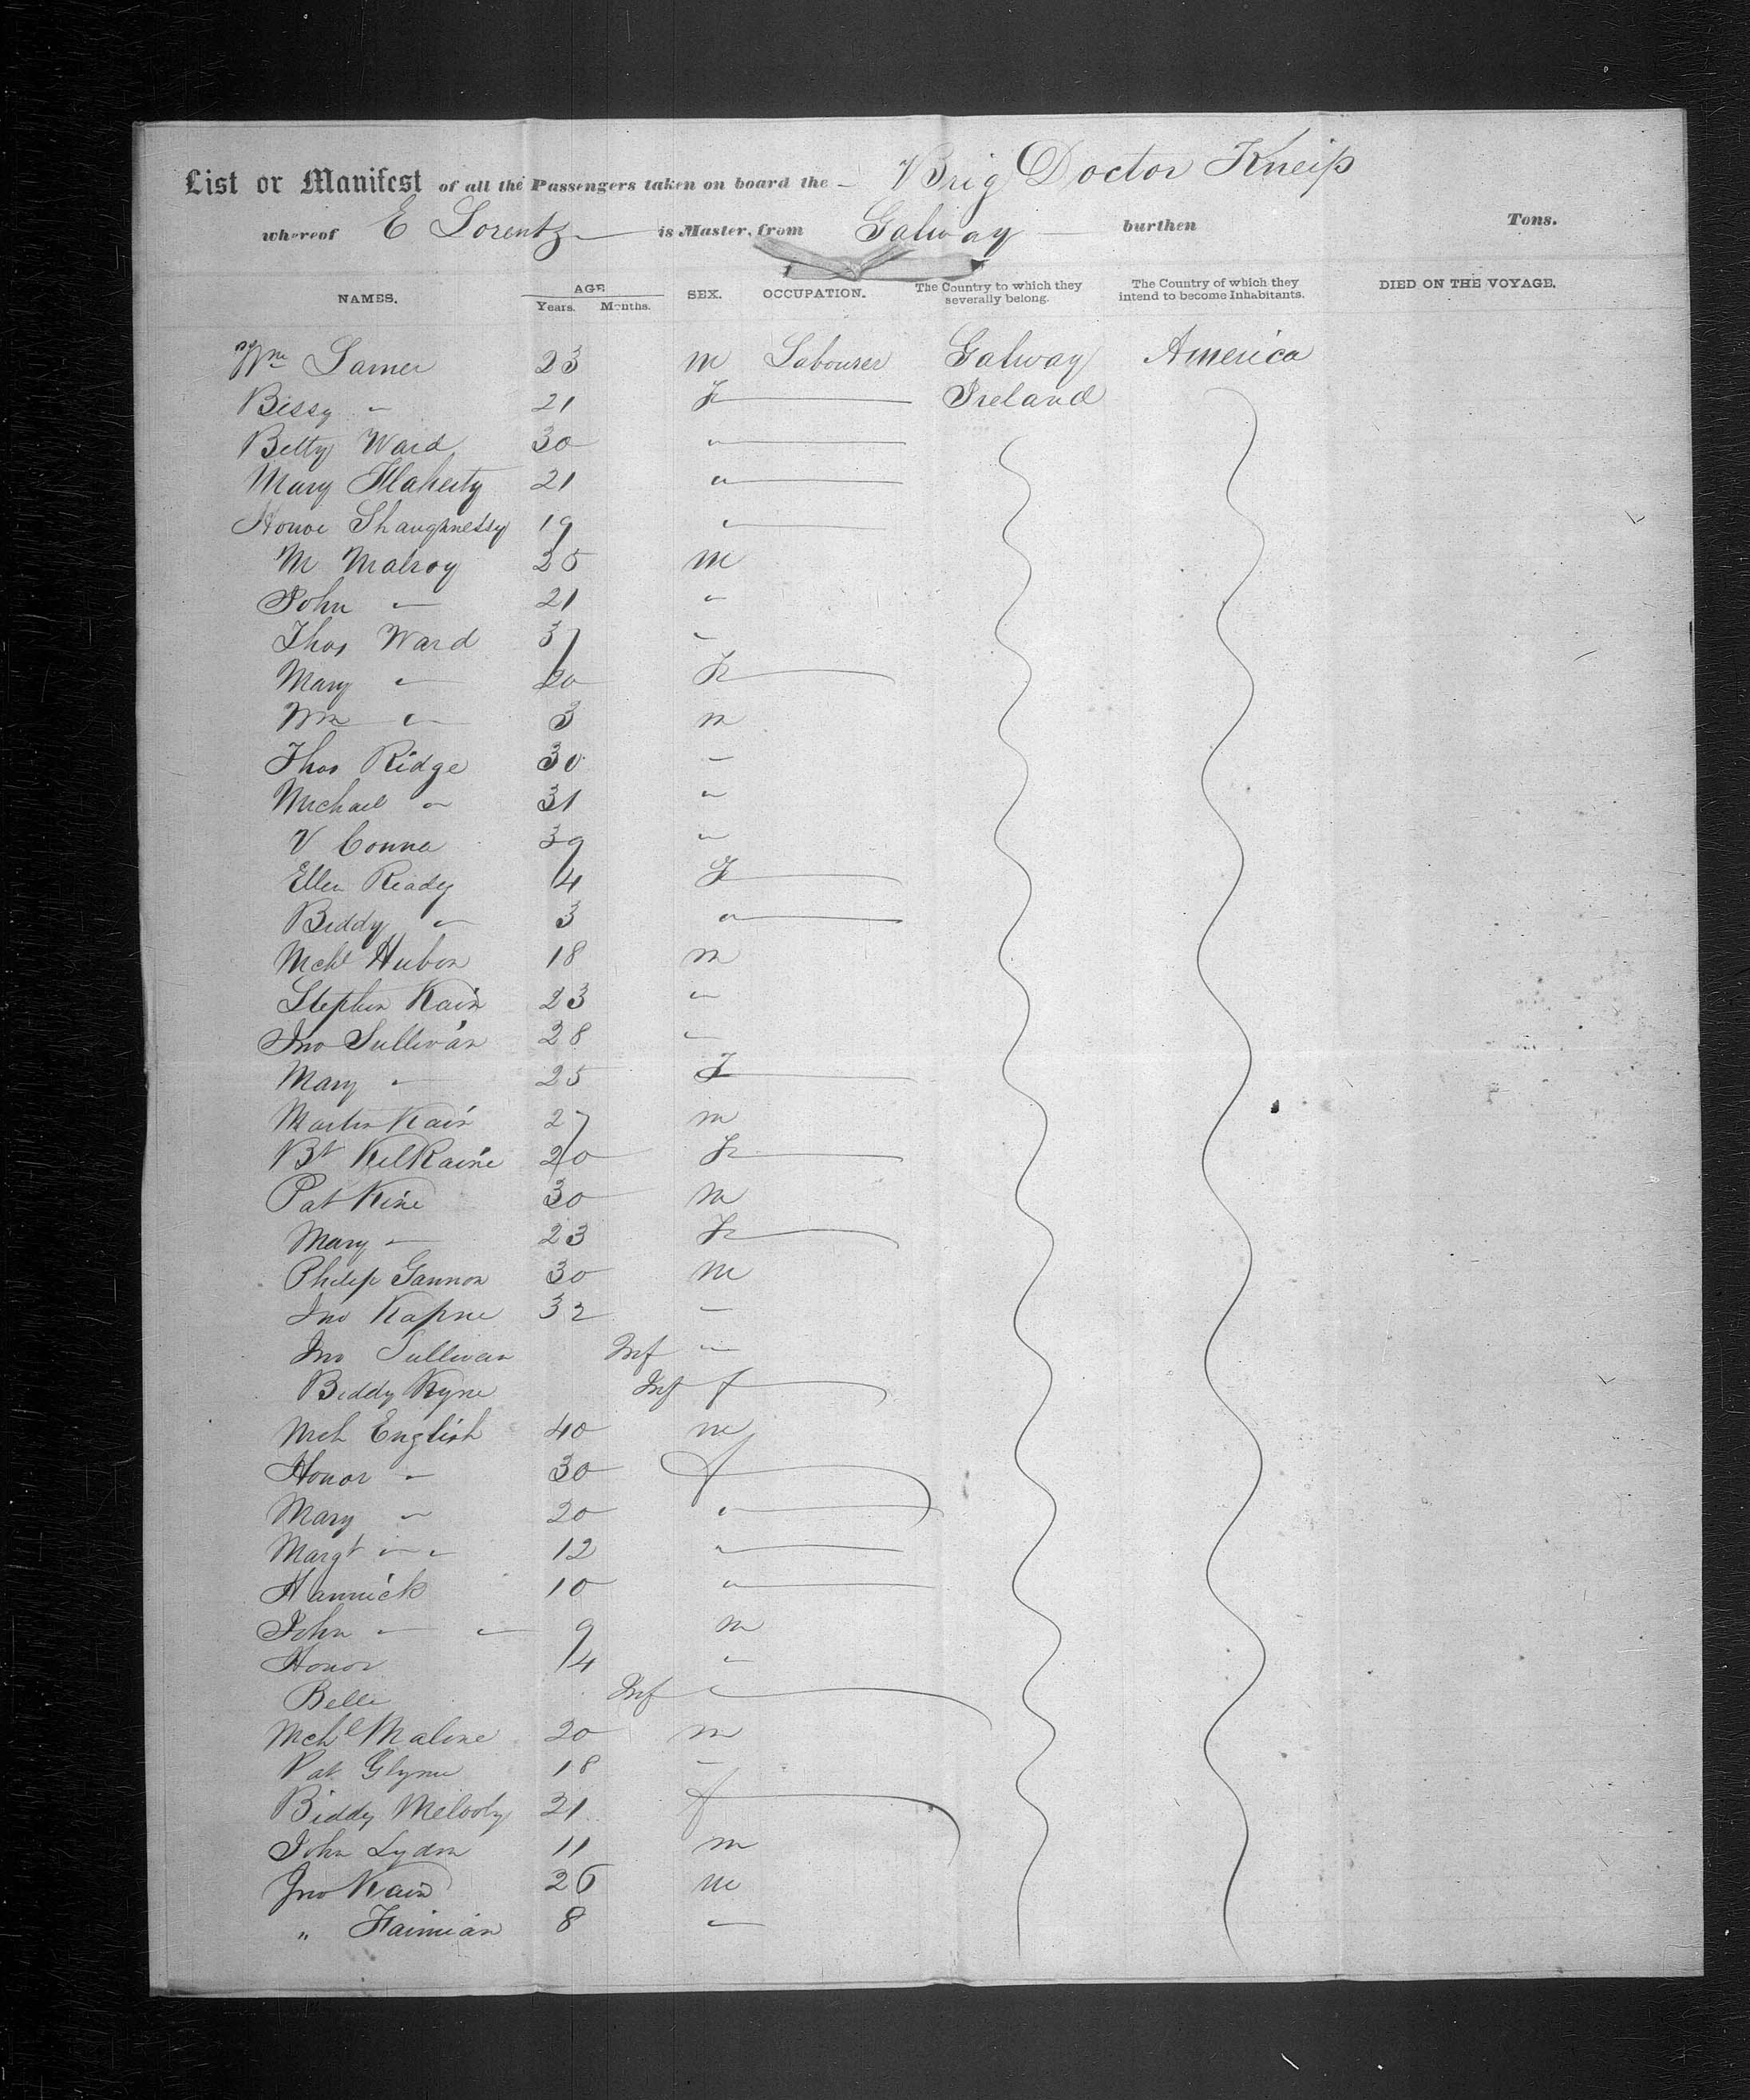 List or Manifest of all the Passengers taken on board the – Brig Doctor Kneip
whereof E Lorentz is Master, from Galway burthen Tons.
NAMES. AGE Years. Months. SEX. OCCUPATION. The Country to which they severally belong. The Country of which they intend to become Inhabitants. DIED ON THE VOYAGE.
Wm Larner 23 m Labourer Galway America
Bissy " 21 F Ireland
Betty Ward 30 "
Mary Flaherty 21 "
Shaughnessy 19 "
M Malroy 25 m
John " 21 "
Thos Ward 37 "
Mary " 20 F
Wm " 3 m
Thos Ridge 30 "
Michael " 31 "
V Conna 39 "
Ellen Ready 4 F
Biddy " 3 "
Mchl Hubon 18 m
Stephen Kain 23 "
Jno Sullivan 28 "
Mary " 25 F
Martin Kain 27 m
Bt KilKaine 20 F
Pat Kine 30 m
Mary " 23 F
Philip Gannon 30 m
Jno 32 "
Jno Sullivan Inf "
Biddy Kyne Inf f
Mch English 40 m
Honor " 30 f
Mary " 20 "
Margt " " 12 "
10 "
John " " 9 m
Honor 4 "
Belle Inf "
Mchl Maline 20 m
Pat Glynn 18 "
Biddy 21 f
John Lydon 11 m
Jno Kain 26 m
" 8 "